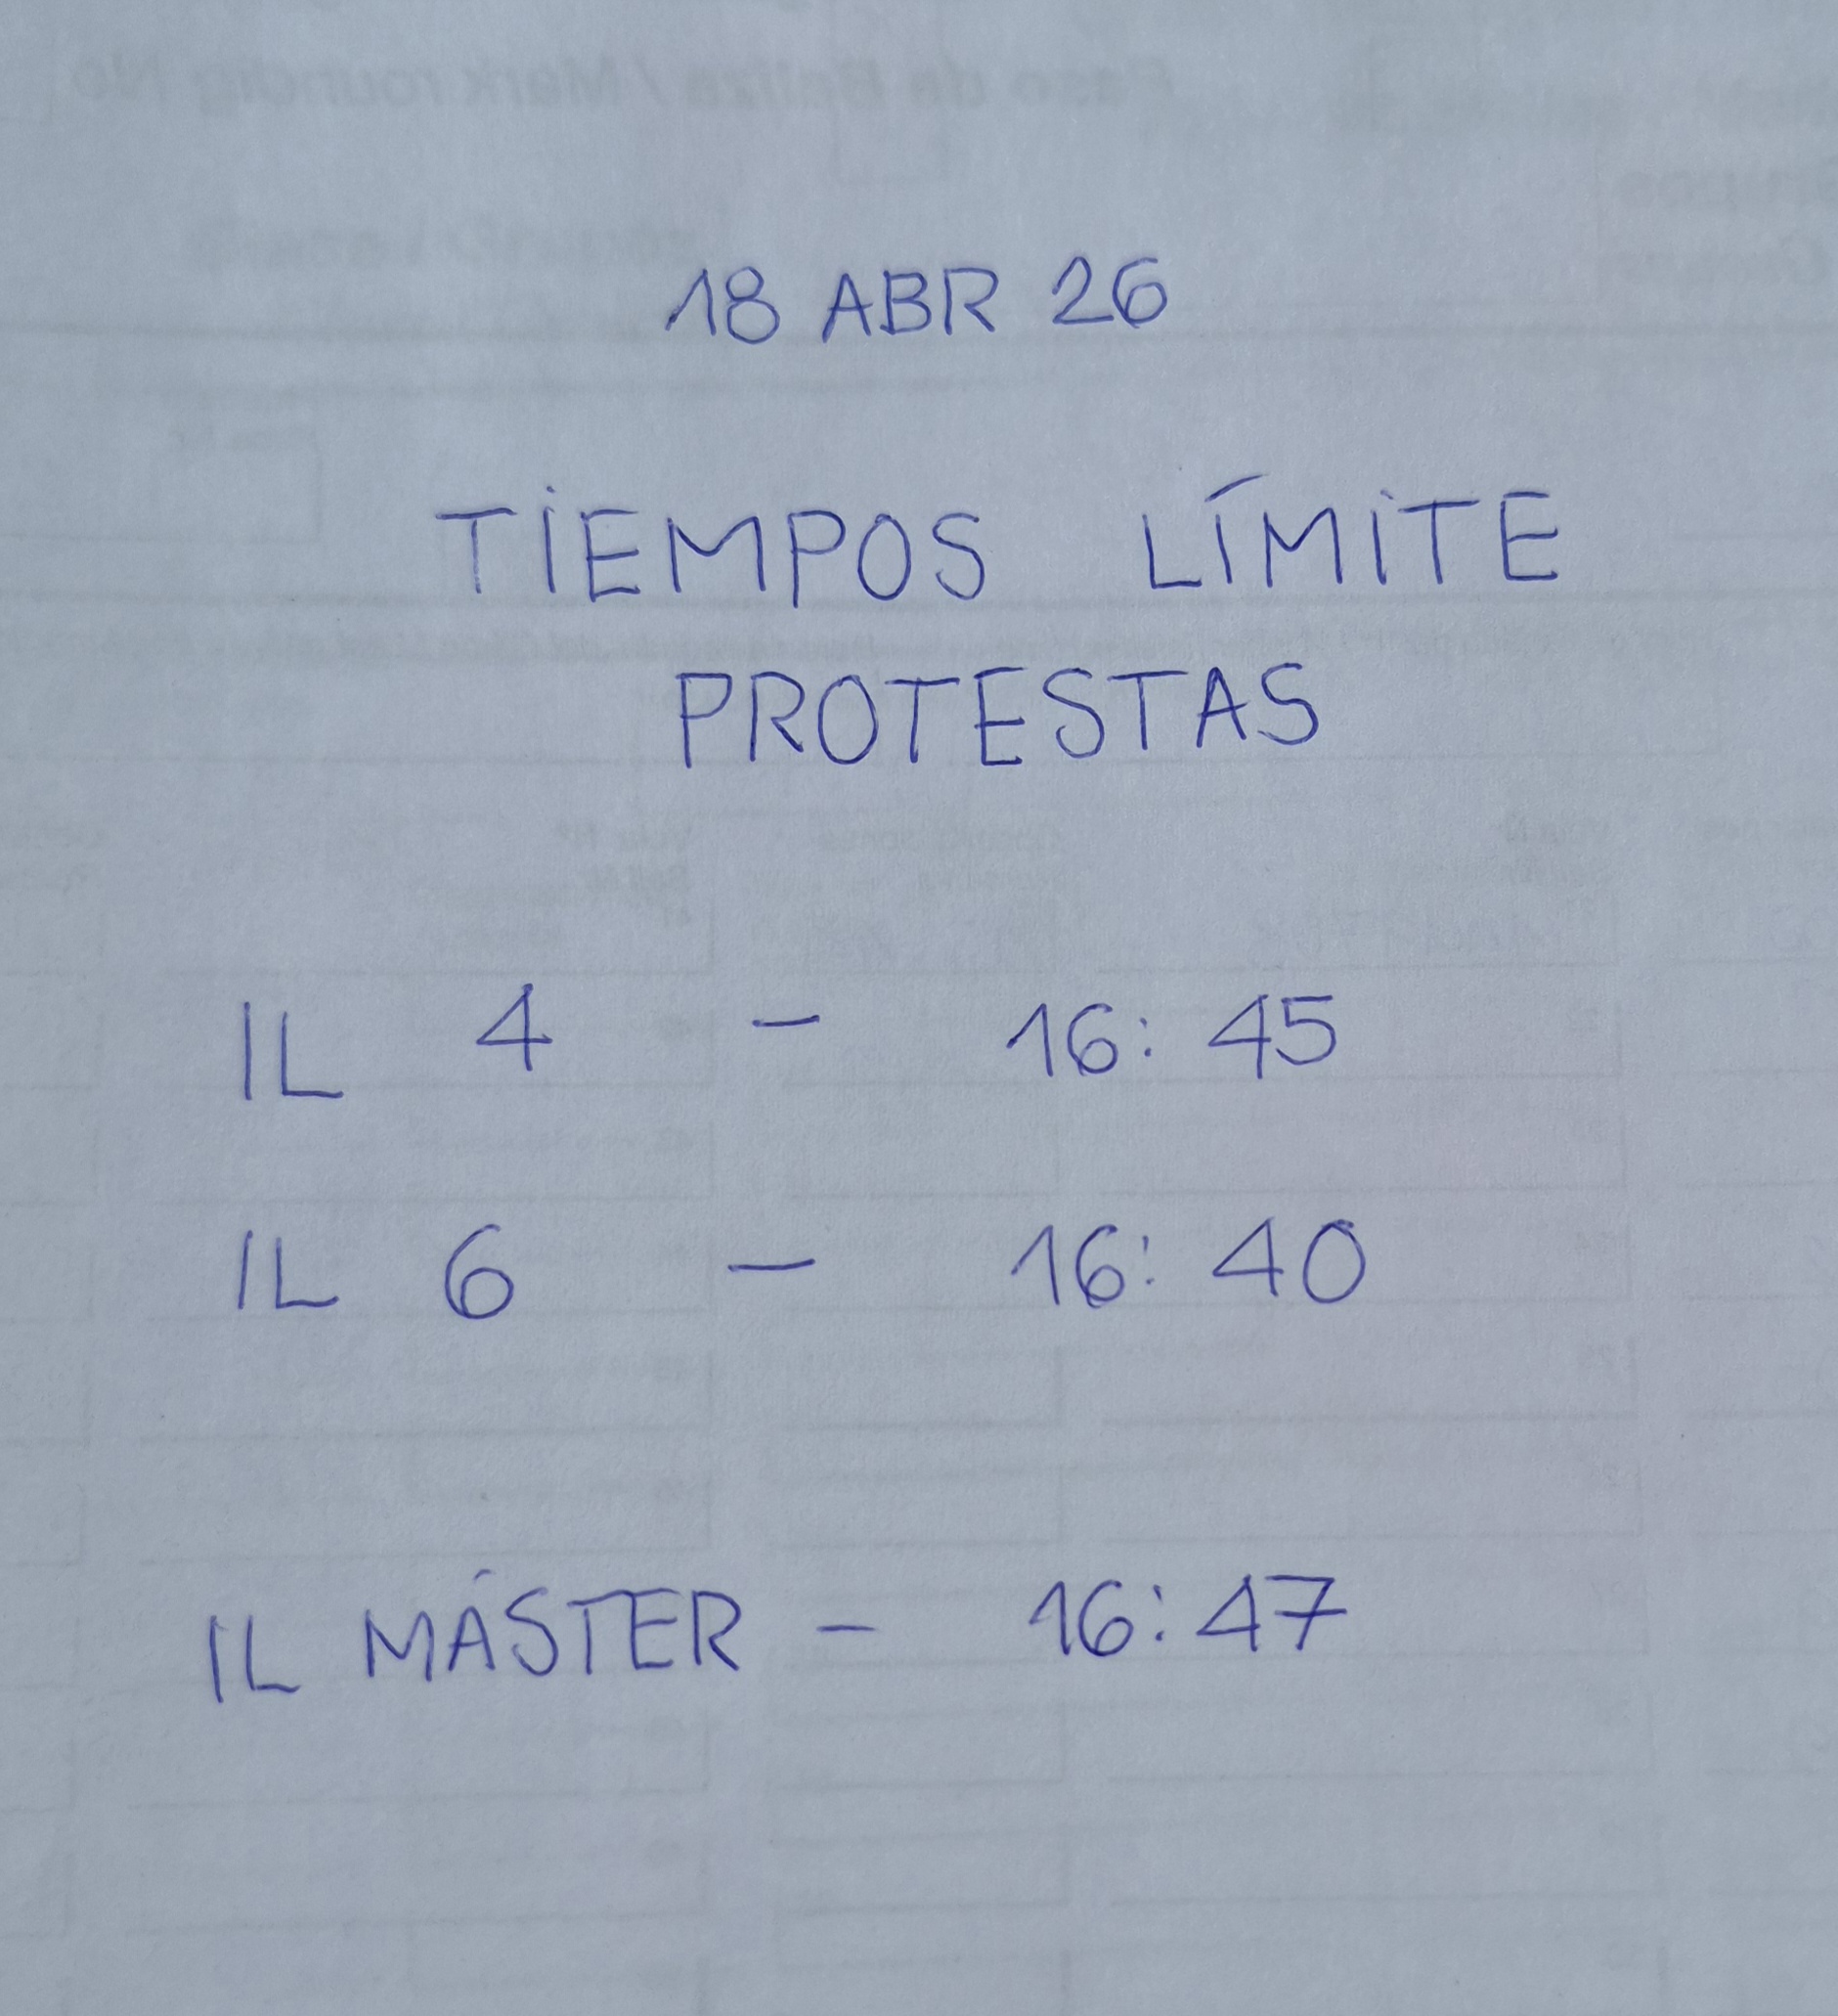 18 ABR 26
TIEMPOS LÍMITE
PROTESTAS
IL 4 - 16:45
IL 6 - 16:40
IL MÁSTER - 16:47